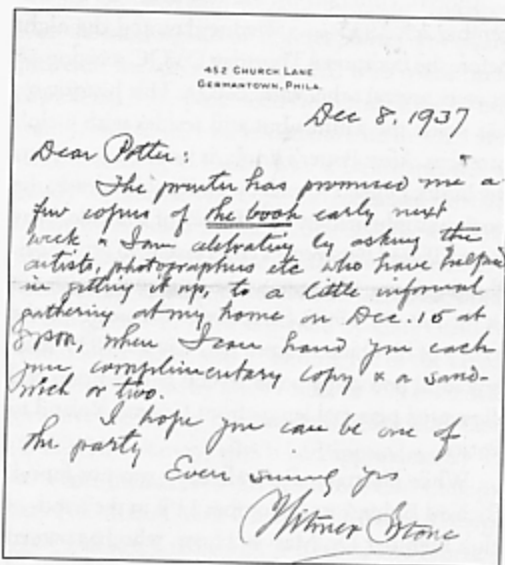 452 CHURCH LANE
GERMANTOWN, PHILA.
Dec 8. 1937
Dear Potter:
The printer has promised me a
few copies of the book early next
week & I am celebrating by asking the
artists, photographers etc who have helped
in getting it up, to a little informal
gathering at my home on Dec. 15 at
when I can hand you each
your complimentary copy & a sand-
wich or two.
I hope you can be one of
the party
Ever sincerely yrs
Witmer Stone